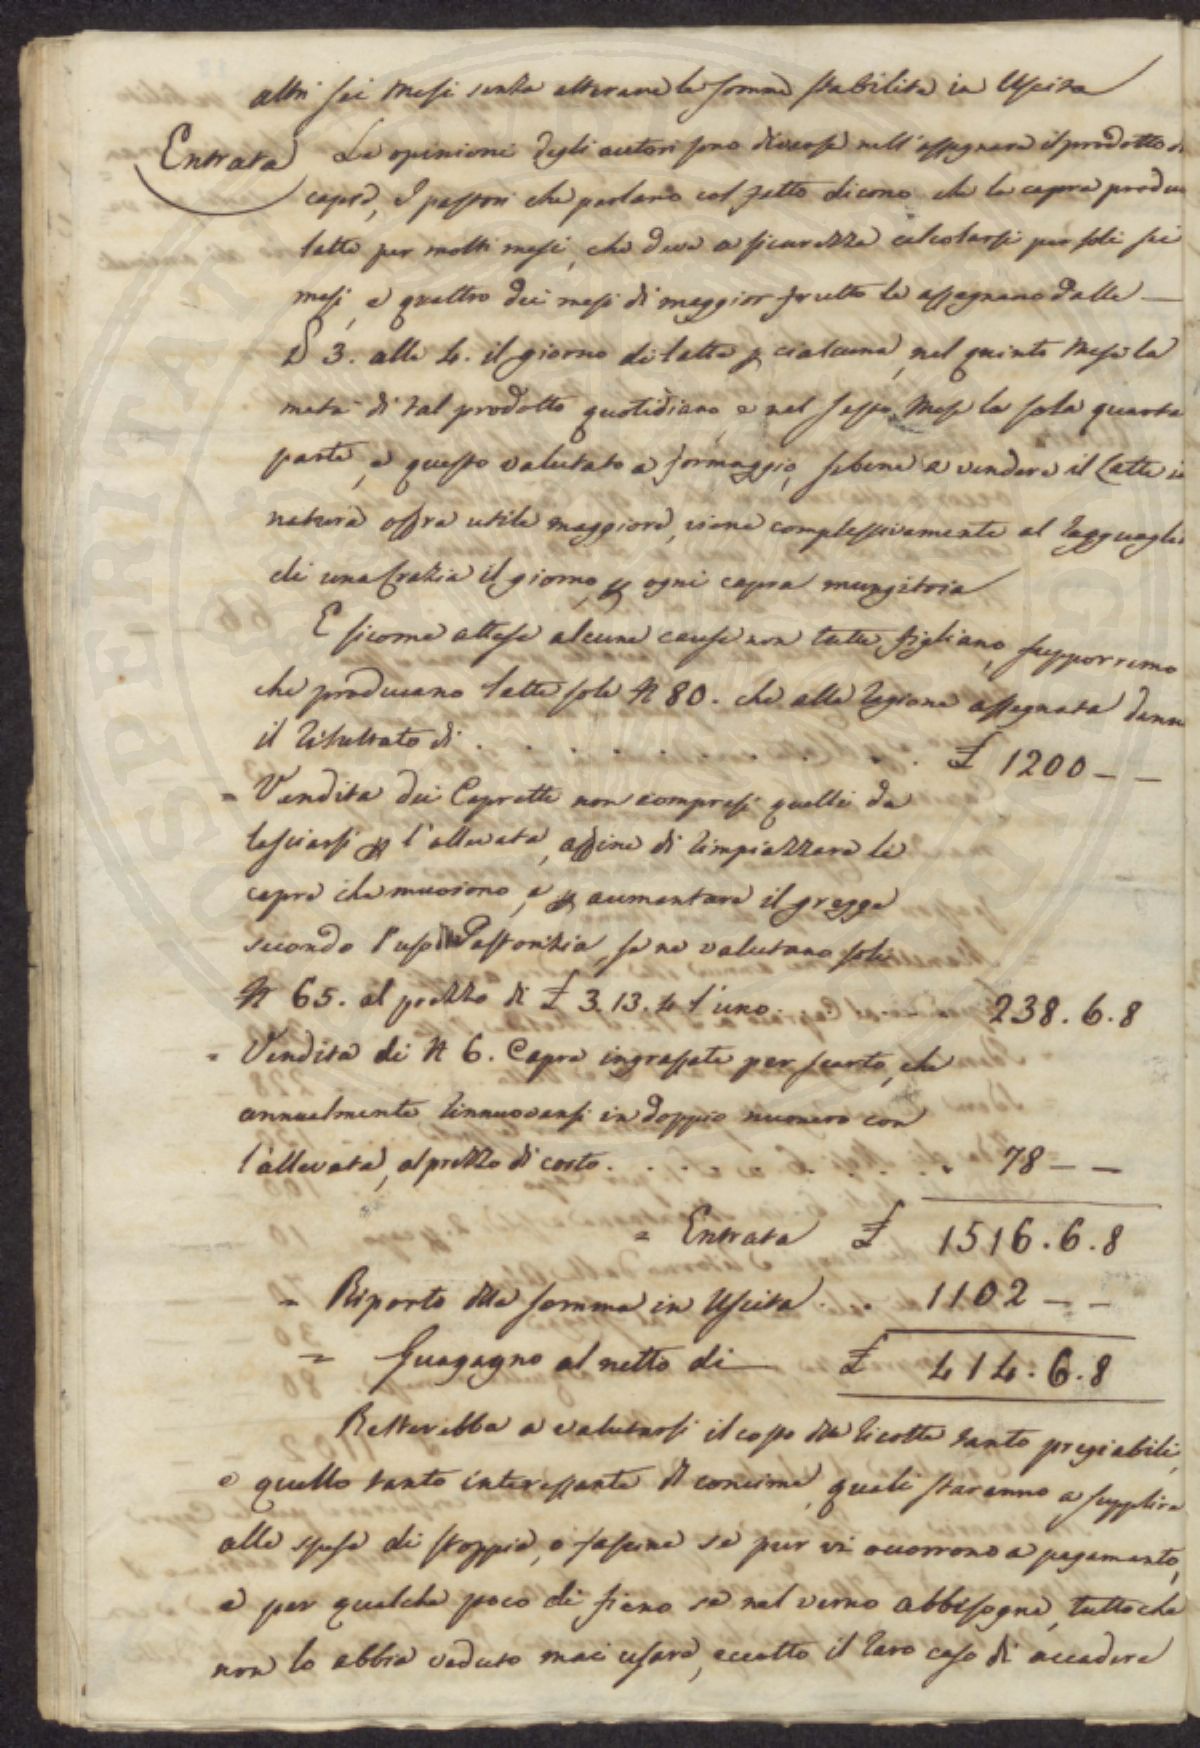 altri sei mesi senza alterare la somma stabilita in Uscita
Entrata Le opinioni degli autori sono diverse nell'assegnare il prodotto di
capre, I pastori che parlano col fatto dicono che la capra produce
latte per molti mesi, che deve a sicurezza calcolarsi per soli sei
mesi, e quattro dei mesi di maggior frutto le assegnano dalle —
℔ 3. alle 4. il giorno di latte p ciascuna, nel quinto mese la
metà di tal prodotto quotidiano, e nel sesto mese la sola quarta
parte, e questo valutato a formaggio, sebene a vendere il latte in
natura offra utile maggiore, viene complessivamente al ragguaglio
di una Crazia il giorno, p ogni capra mungitoria
E sicome attese alcune cause non tutte figliano, supporremo
che producano latte sole N 80. che alla ragione assegnata danno
il risultato di . . . . . . . . . . £ 1200 – –
= Vendita dei Capretti non compresi quelli da
lasciarsi p l'allevata, affine di rimpiazzare le
capre che muoiono, e p aumentare il gregge
secondo l'uso Pastorizia, se ne valutano soli
N 65. al prezzo di £ 3.13.4 l'uno. . . . 238.6.8
= Vendita di N 6. Capre ingrassate per scarto, che
annualmente rinnuovansi in doppio numero con
l'allevata, al prezzo di costo. . . . . . . . . 78 – –
= Entrata £ 1516.6.8
= Riporto dlla somma in Uscita . 1102 – –
= Guagagno al netto di — £ 414.6.8
Resterebbe a valutarsi il costo dlle ricotte tanto pregiabili,
e quello tanto interessante dl concime, quali staranno a supplire
alle spese di stoppia, o fascine se pur vi occorrono a pagamento,
e per qualche poco di fieno se nel verno abbisogna, tutto che
non lo abbia veduto mai usare, eccetto il raro caso di accadere